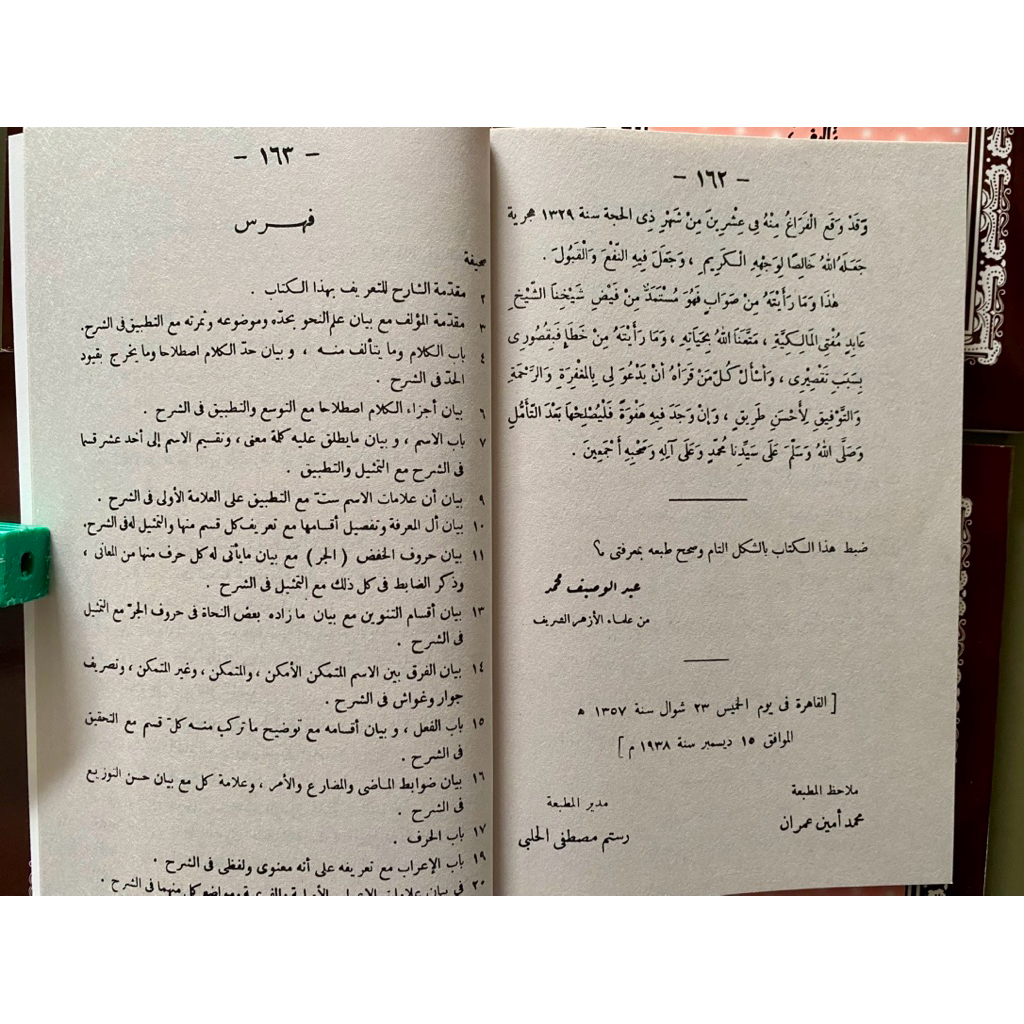 تأليف
— ١٦٢ —
وَقَدْ وَقَعَ الْفَرَاغُ مِنْهُ فِي عِشْرِينَ مِنْ شَهْرِ ذِى الحجة سنة ١٣٢٩ هجرية
جَعَلَهُ اللهُ خَالِصًا لِوَجْهِهِ الْكَرِيمِ ، وَجَعَلَ فِيهِ النَّفْعَ وَالْقَبُولَ .
هٰذَا وَمَا رَأَيْتَهُ مِنْ صَوَابٍ فَهُوَ مُسْتَمَدٌّ مِنْ فَيْضِ شَيْخِنَا الشَّيْخِ
عَابِدٍ مُفْتِى المَالِكِيَّةِ ، مَتَّعَنَا اللهُ بِحَيَاتِهِ ، وَمَا رَأَيْتَهُ مِنْ خَطَإٍ فَبِقُصُورِى
بِسَبَبِ تَقْصِيرِى ، وَأَسْأَلُ كُلَّ مَنْ قَرَأَهُ أَنْ يَدْعُوَ لِى بِالمَغْفِرَةِ وَالرَّحْمَةِ
وَالتَّوْفِيقِ لِأَحْسَنِ طَرِيقٍ ، وَإِنْ وَجَدَ فِيهِ هَفْوَةً فَلْيُصْلِحْهَا بَعْدَ التَّأَمُّلِ
وَصَلَّى اللهُ وَسَلَّمَ عَلَى سَيِّدِنَا مُحَمَّدٍ وَعَلَى آلِهِ وَصَحْبِهِ أَجْمَعِينَ .
ضبط هذا الكتاب بالشكل التام وصحح طبعه بمعرفتى
عبد الوصيف محمد
من علماء الأزهر الشريف
[ القاهرة فى يوم الخميس ٢٣ شوال سنة ١٣٥٧ ه
الموافق ١٥ ديسمبر سنة ١٩٣٨ م ]
ملاحظ المطبعة
محمد أمين عمران
مدير المطبعة
رستم مصطفى الحلبى
— ١٦٣ —
فهرس
صحيفة
٢ مقدّمة الشارح للتعريف بهذا الكتاب .
٣ مقدّمة المؤلف مع بيان علم النحو بحدّه وموضوعه وثمرته مع التطبيق فى الشرح.
٤ باب الكلام وما يتألف منه ، و بيان حدّ الكلام اصطلاحا وما يخرج بقيود
الحدّ فى الشرح .
٦ بيان أجزاء الكلام اصطلاحا مع التوسع والتطبيق فى الشرح .
٧ باب الاسم ، و بيان مايطلق عليه كلمة معنى ، وتقسيم الاسم إلى أحد عشر قسما
فى الشرح مع التمثيل والتطبيق .
٩ بيان أن علامات الاسم ستّ مع التطبيق على العلامة الأولى فى الشرح .
١٠ بيان أل المعرفة وتفصيل أقسامها مع تعريف كل قسم منها والتمثيل له فى الشرح.
١١ بيان حروف الخفض ( الجر ) مع بيان مايأتى له كل حرف منها من المعانى ،
وذكر الضابط فى كل ذلك مع التمثيل فى الشرح .
١٣ بيان أقسام التنوين مع بيان مازاده بعض النحاة فى حروف الجرّ مع التمثيل
فى الشرح .
١٤ بيان الفرق بين الاسم المتمكن الأمكن ، والمتمكن ، وغير المتمكن ، وتصريف
جوار وغواش فى الشرح .
١٥ باب الفعل ، و بيان أقسامه مع توضيح ما تركب منه كلّ قسم مع التحقيق
فى الشرح .
١٦ بيان ضوابط الماضى والمضارع والأمر ، وعلامة كل مع بيان حسن التوزيع
فى الشرح .
١٧ باب الحرف .
١٩ باب الإعراب مع تعريفه على أنه معنوى ولفظى فى الشرح .
٢٠ فى بيان علامات الإعراب الأصلية والفرعية ومواضع كل منهما فى الشرح .